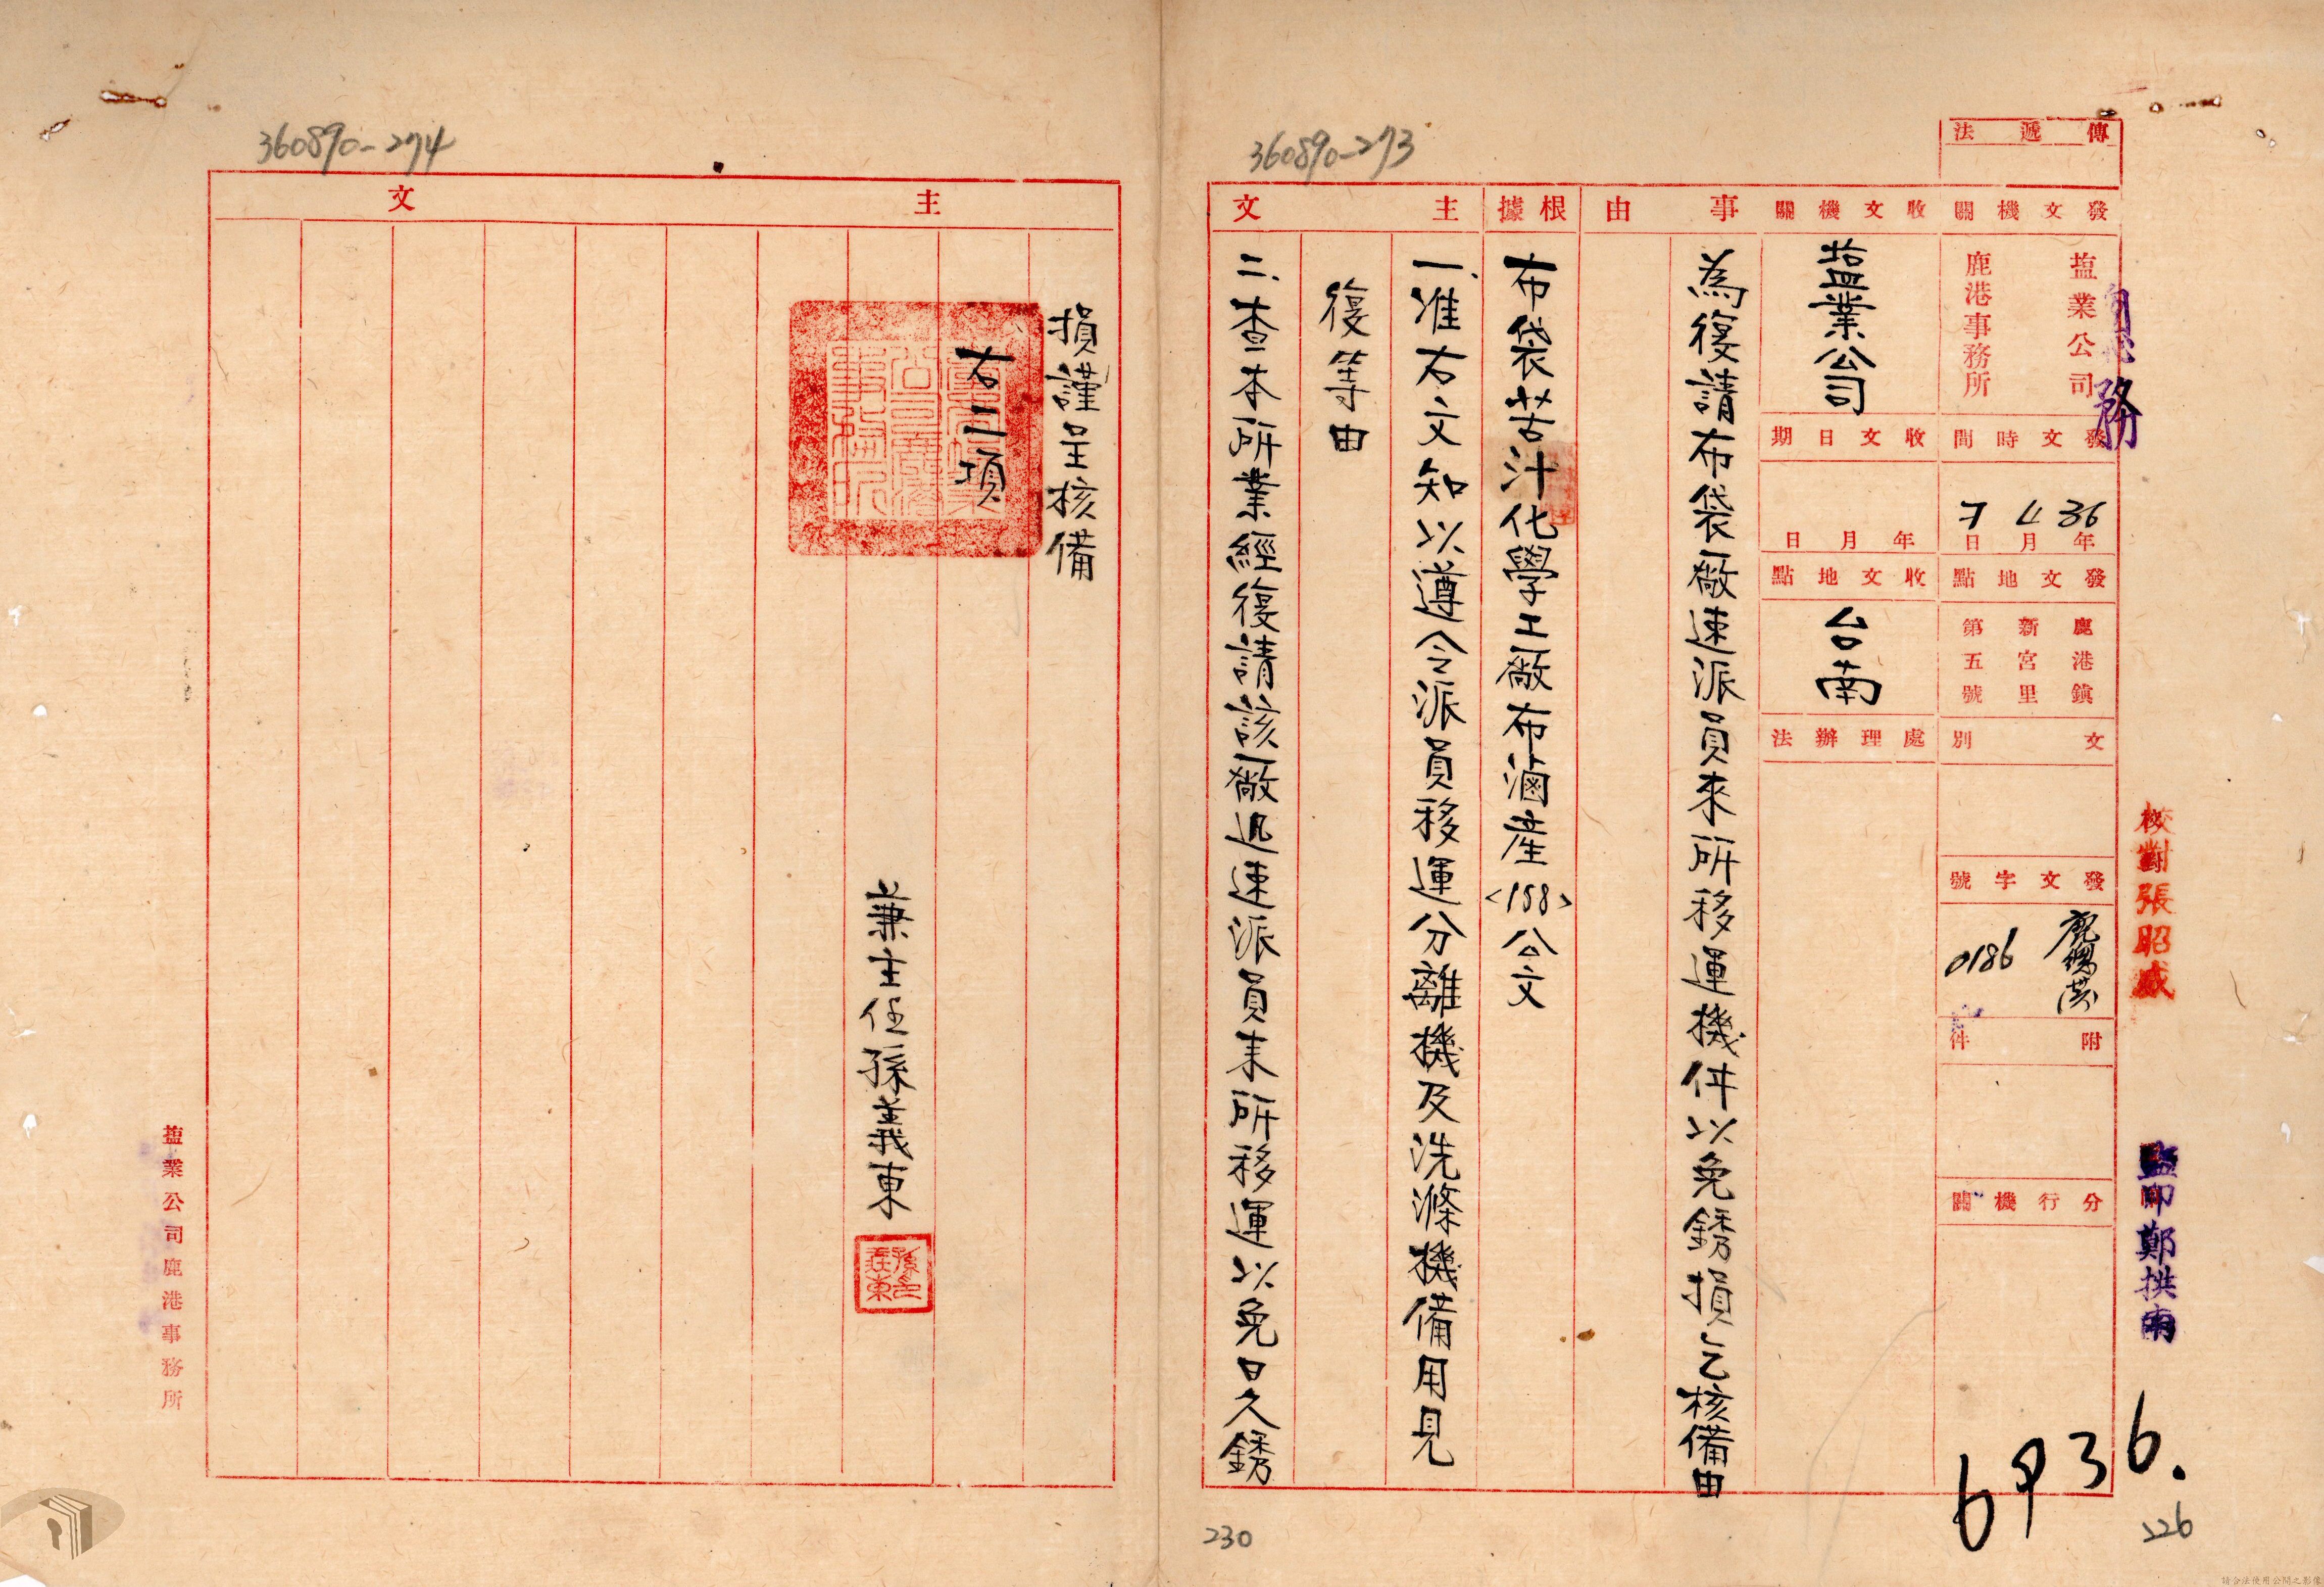 360890-273
傳遞法
發文機關
塩業公司
鹿港事務所
發文時間
36年4月7日
發文地點
鹿港鎮
新宮里
第五號
文別
發文字號
0186
附件
分行機關
收文機關
塩業公司
收文日期
年月日
收文地點
台南
處理辦法
事由
為復請布袋廠速派員來所移運機件以免銹損乞核備由
根據
布袋苦汁化學工廠布滷產<188>公文
主文
一、准右文知以遵令派員移運分離機及洗滌機備用見
復等由
二、查本所業經復請該廠迅速派員来所移運以免日久銹
校對張昭威
監印鄭拱南
6936.
226
230
360890-274
主文
損謹呈核備
右二項
兼主任孫義東
塩業公司鹿港事務所
請合法使用公開之影像